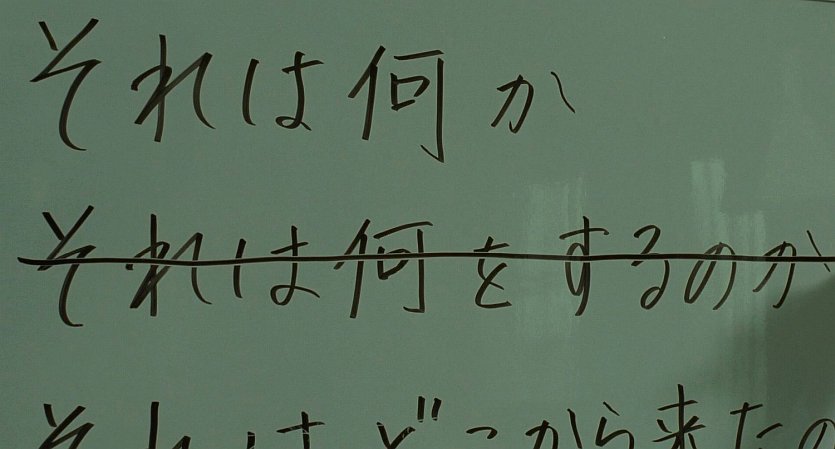 それは何か
それは何をするのか
それはどっから来たの